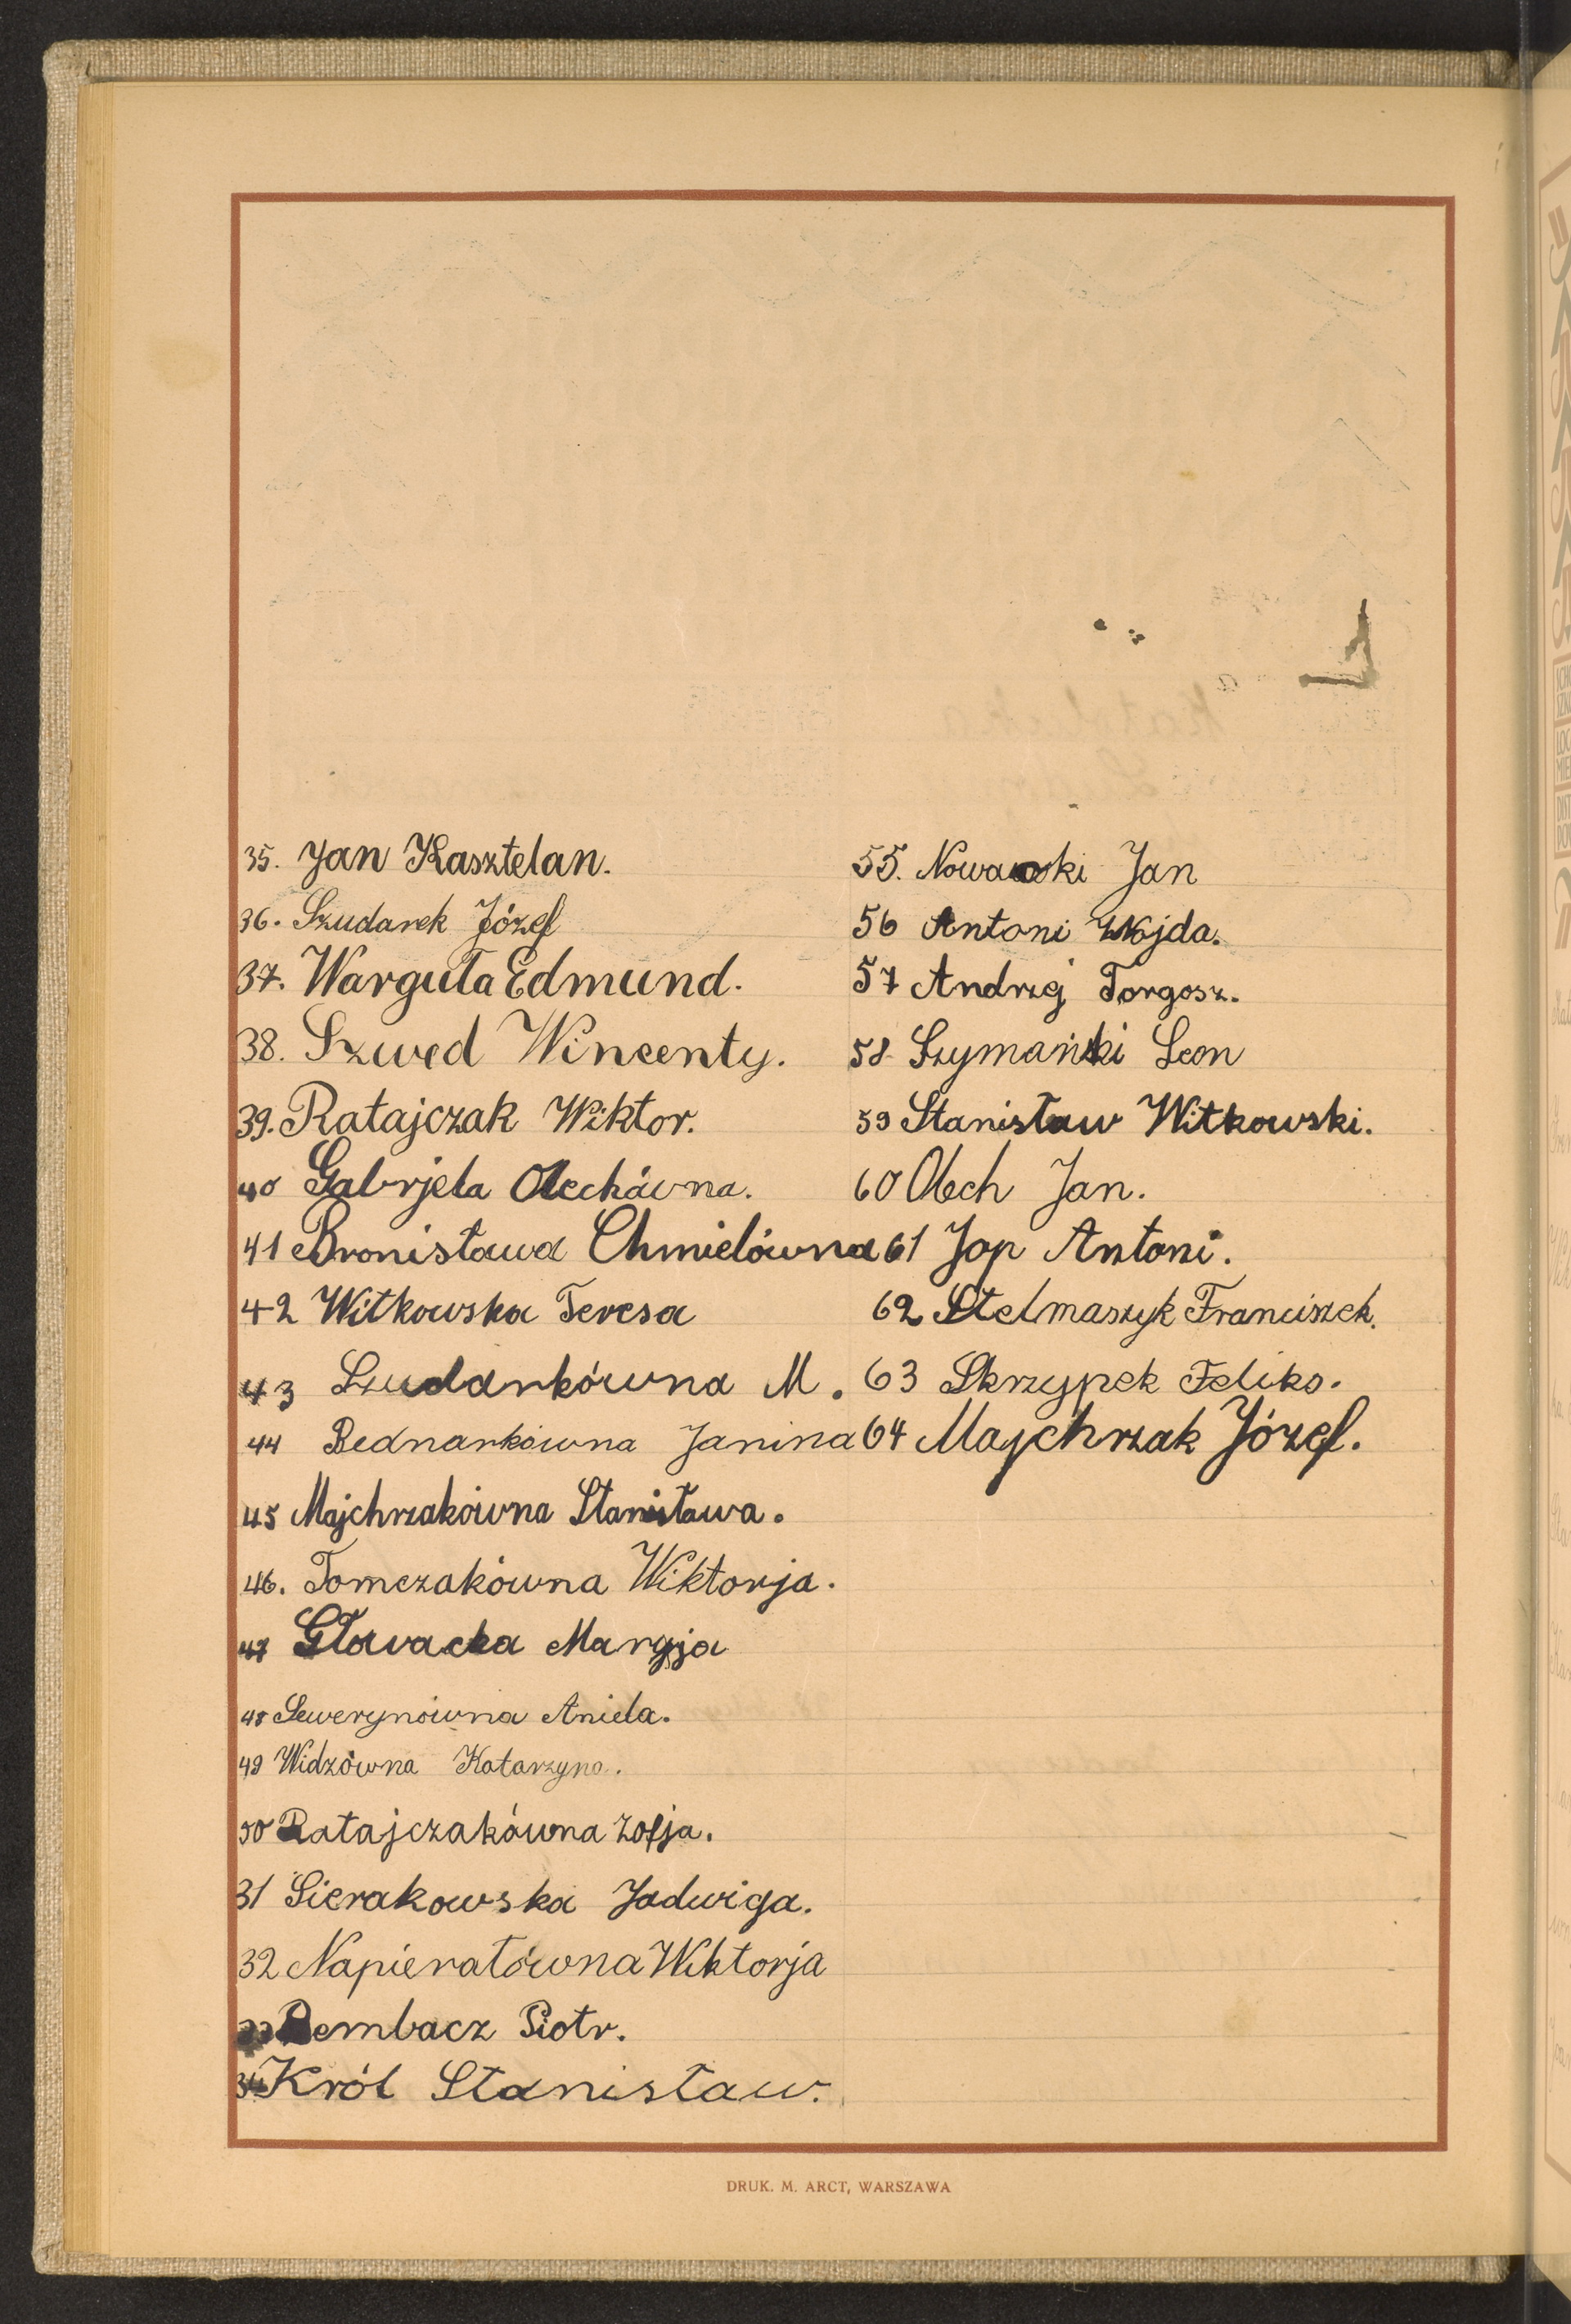 35. Jan Kasztelan.
36. Szudarek Józef
37. Warguła Edmund.
38. Szwed Wincenty.
39. Ratajczak Wiktor.
40 Gabrjela Olechówna.
41 Bronisława Chmielówna
42 Witkowska Teresa
43 Szudarkówna M.
44 Bednarkówna Janina
45 Majchrzakówna Stanisława.
46. Tomczakówna Wiktorja.
47 Głowacka Maryja
48 Sewerynówna Aniela.
49 Widzówna Katarzyna.
50 Ratajczakówna Zofja.
31 Sierakowska Jadwiga.
32 Napierałówna Wiktorja
33 Rembacz Piotr.
34 Król Stanisław.
55. Nowacki Jan
56 Antoni Wojda.
57 Andrzej Torgosz.
58 Szymański Leon
59 Stanisław Witkowski.
60 Olech Jan.
61 Jop Antoni.
62 Stelmaszyk Franciszek.
63 Skrzypek Feliks.
64 Majchrzak Józef.
DRUK. M. ARCT, WARSZAWA